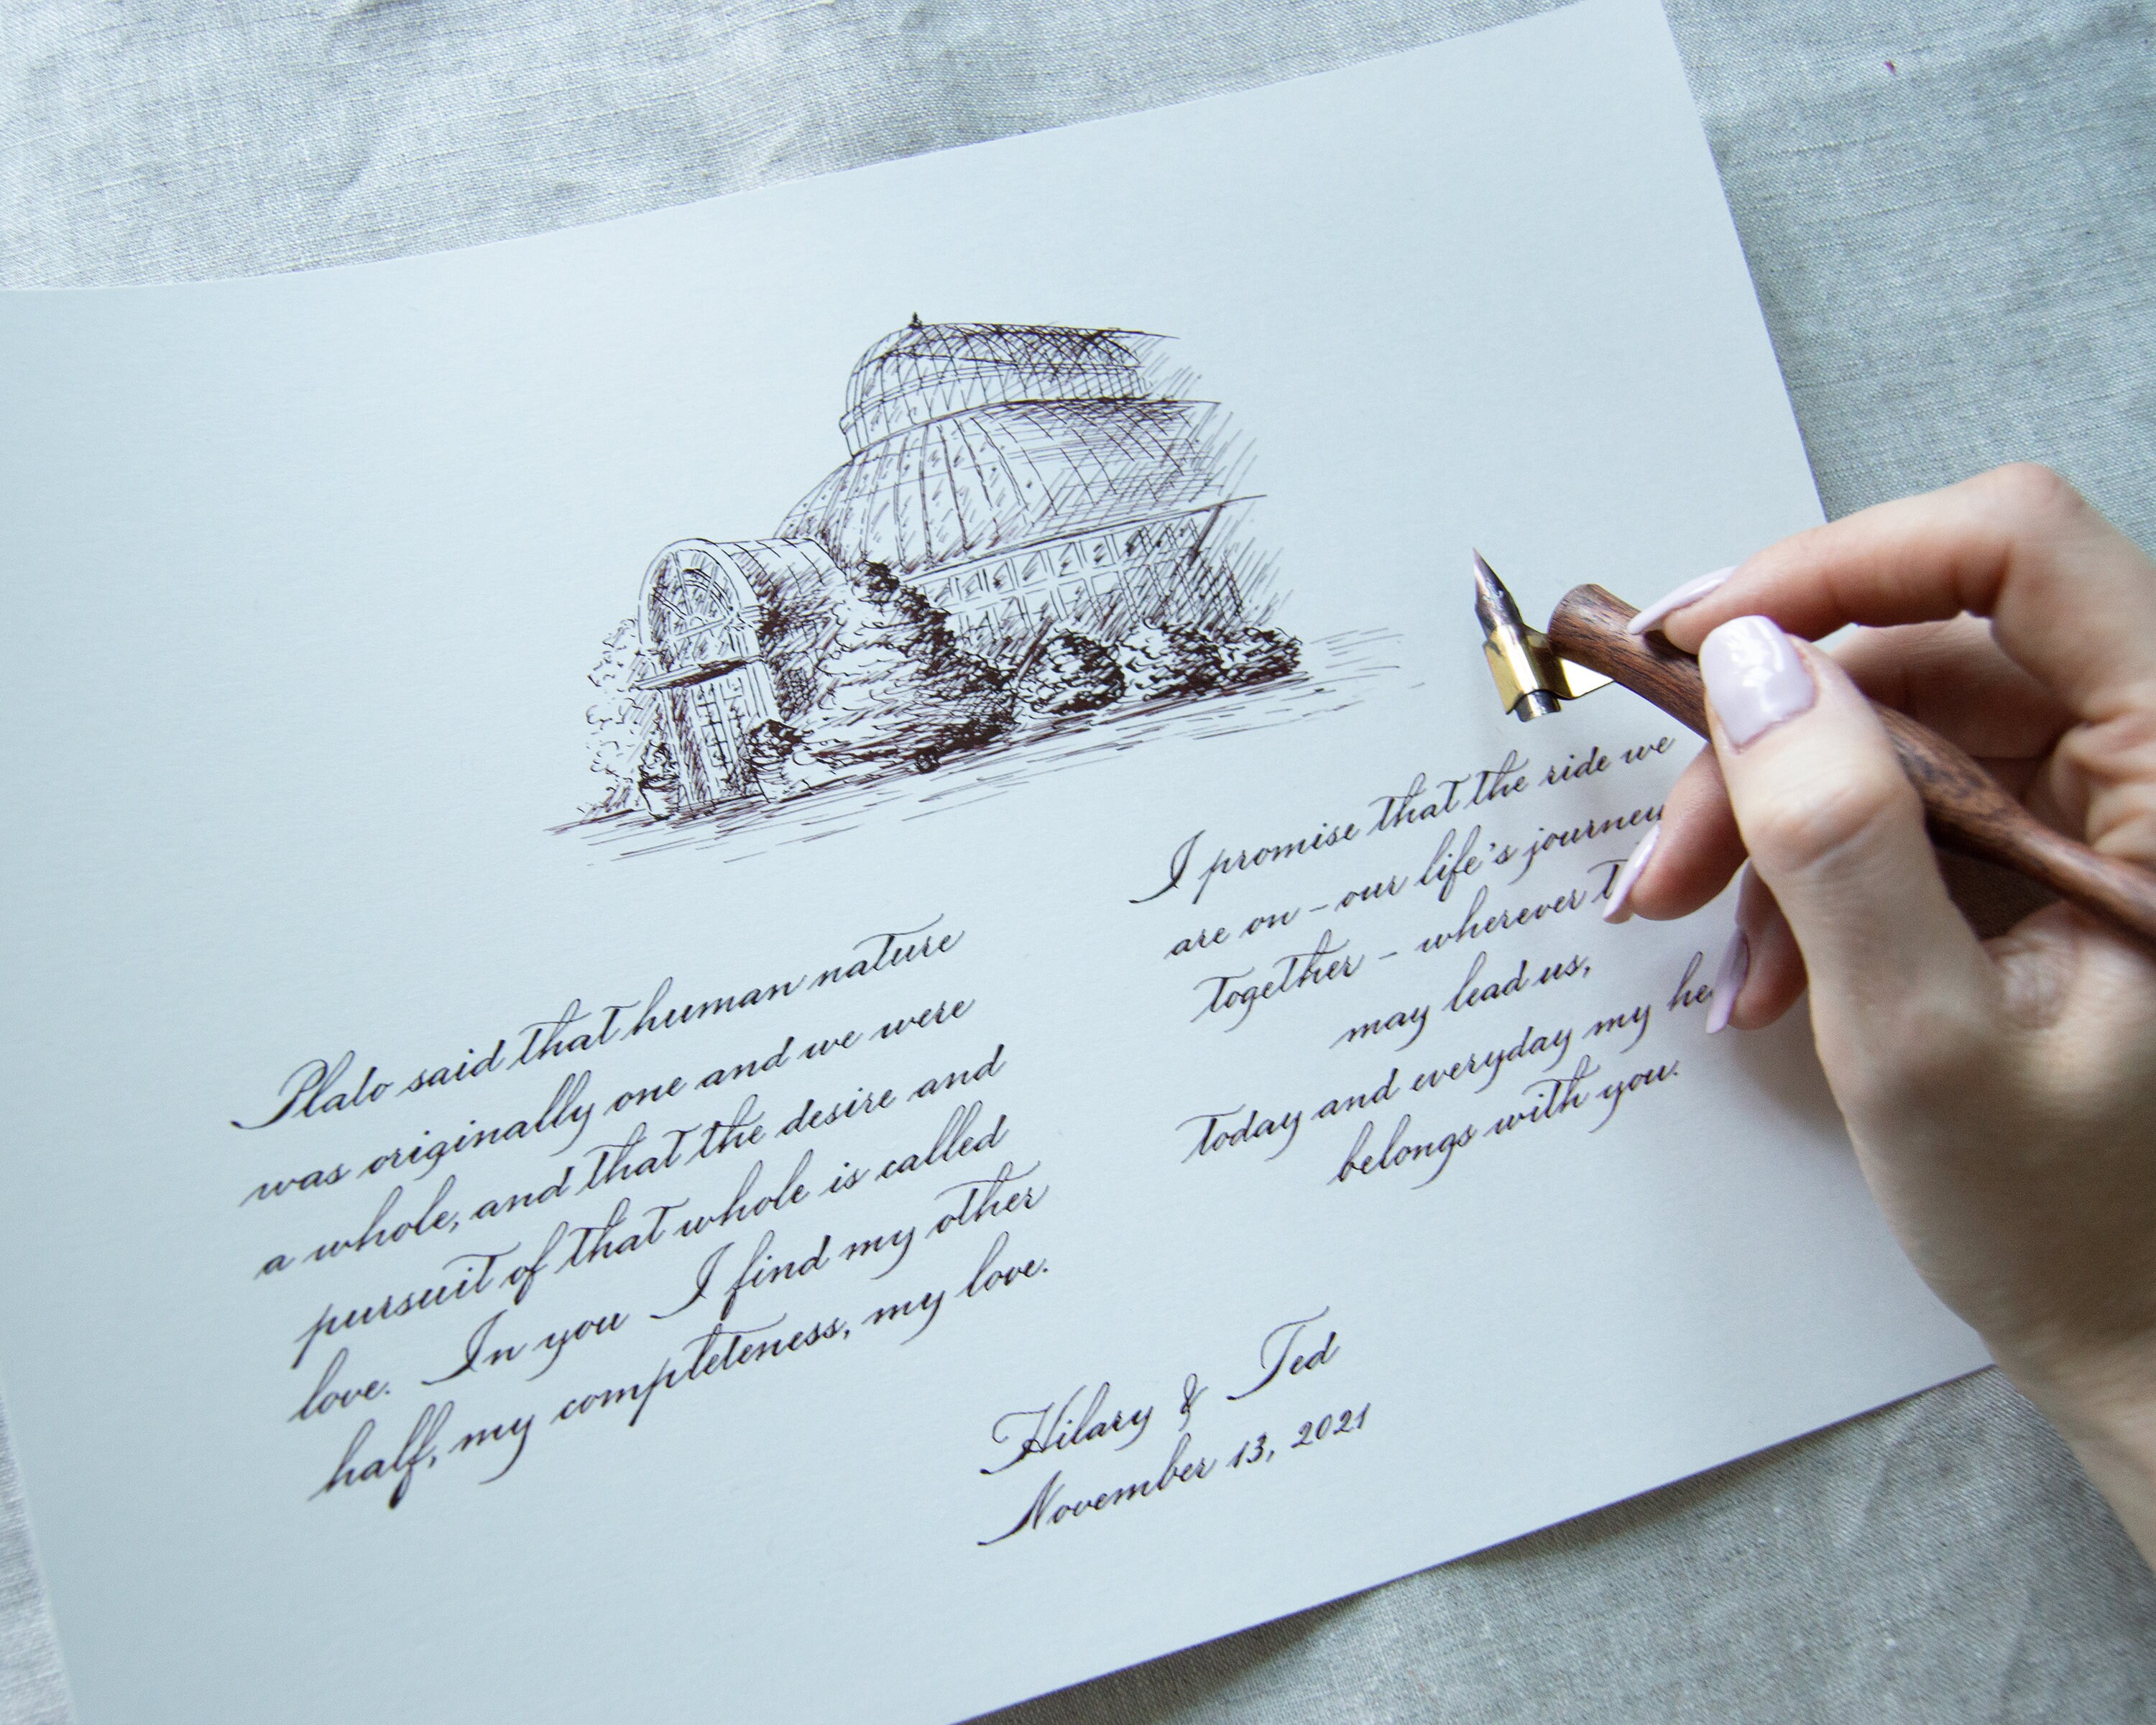 Plato said that human nature
was originally one and we were
a whole, and that the desire and
pursuit of that whole is called
love. In you I find my other
half, my completeness, my love.
I promise that the ride we
are on – our life's journey
together – wherever
may lead us,
today and everyday my
belongs with you.
Hilary & Ted
November 13, 2021